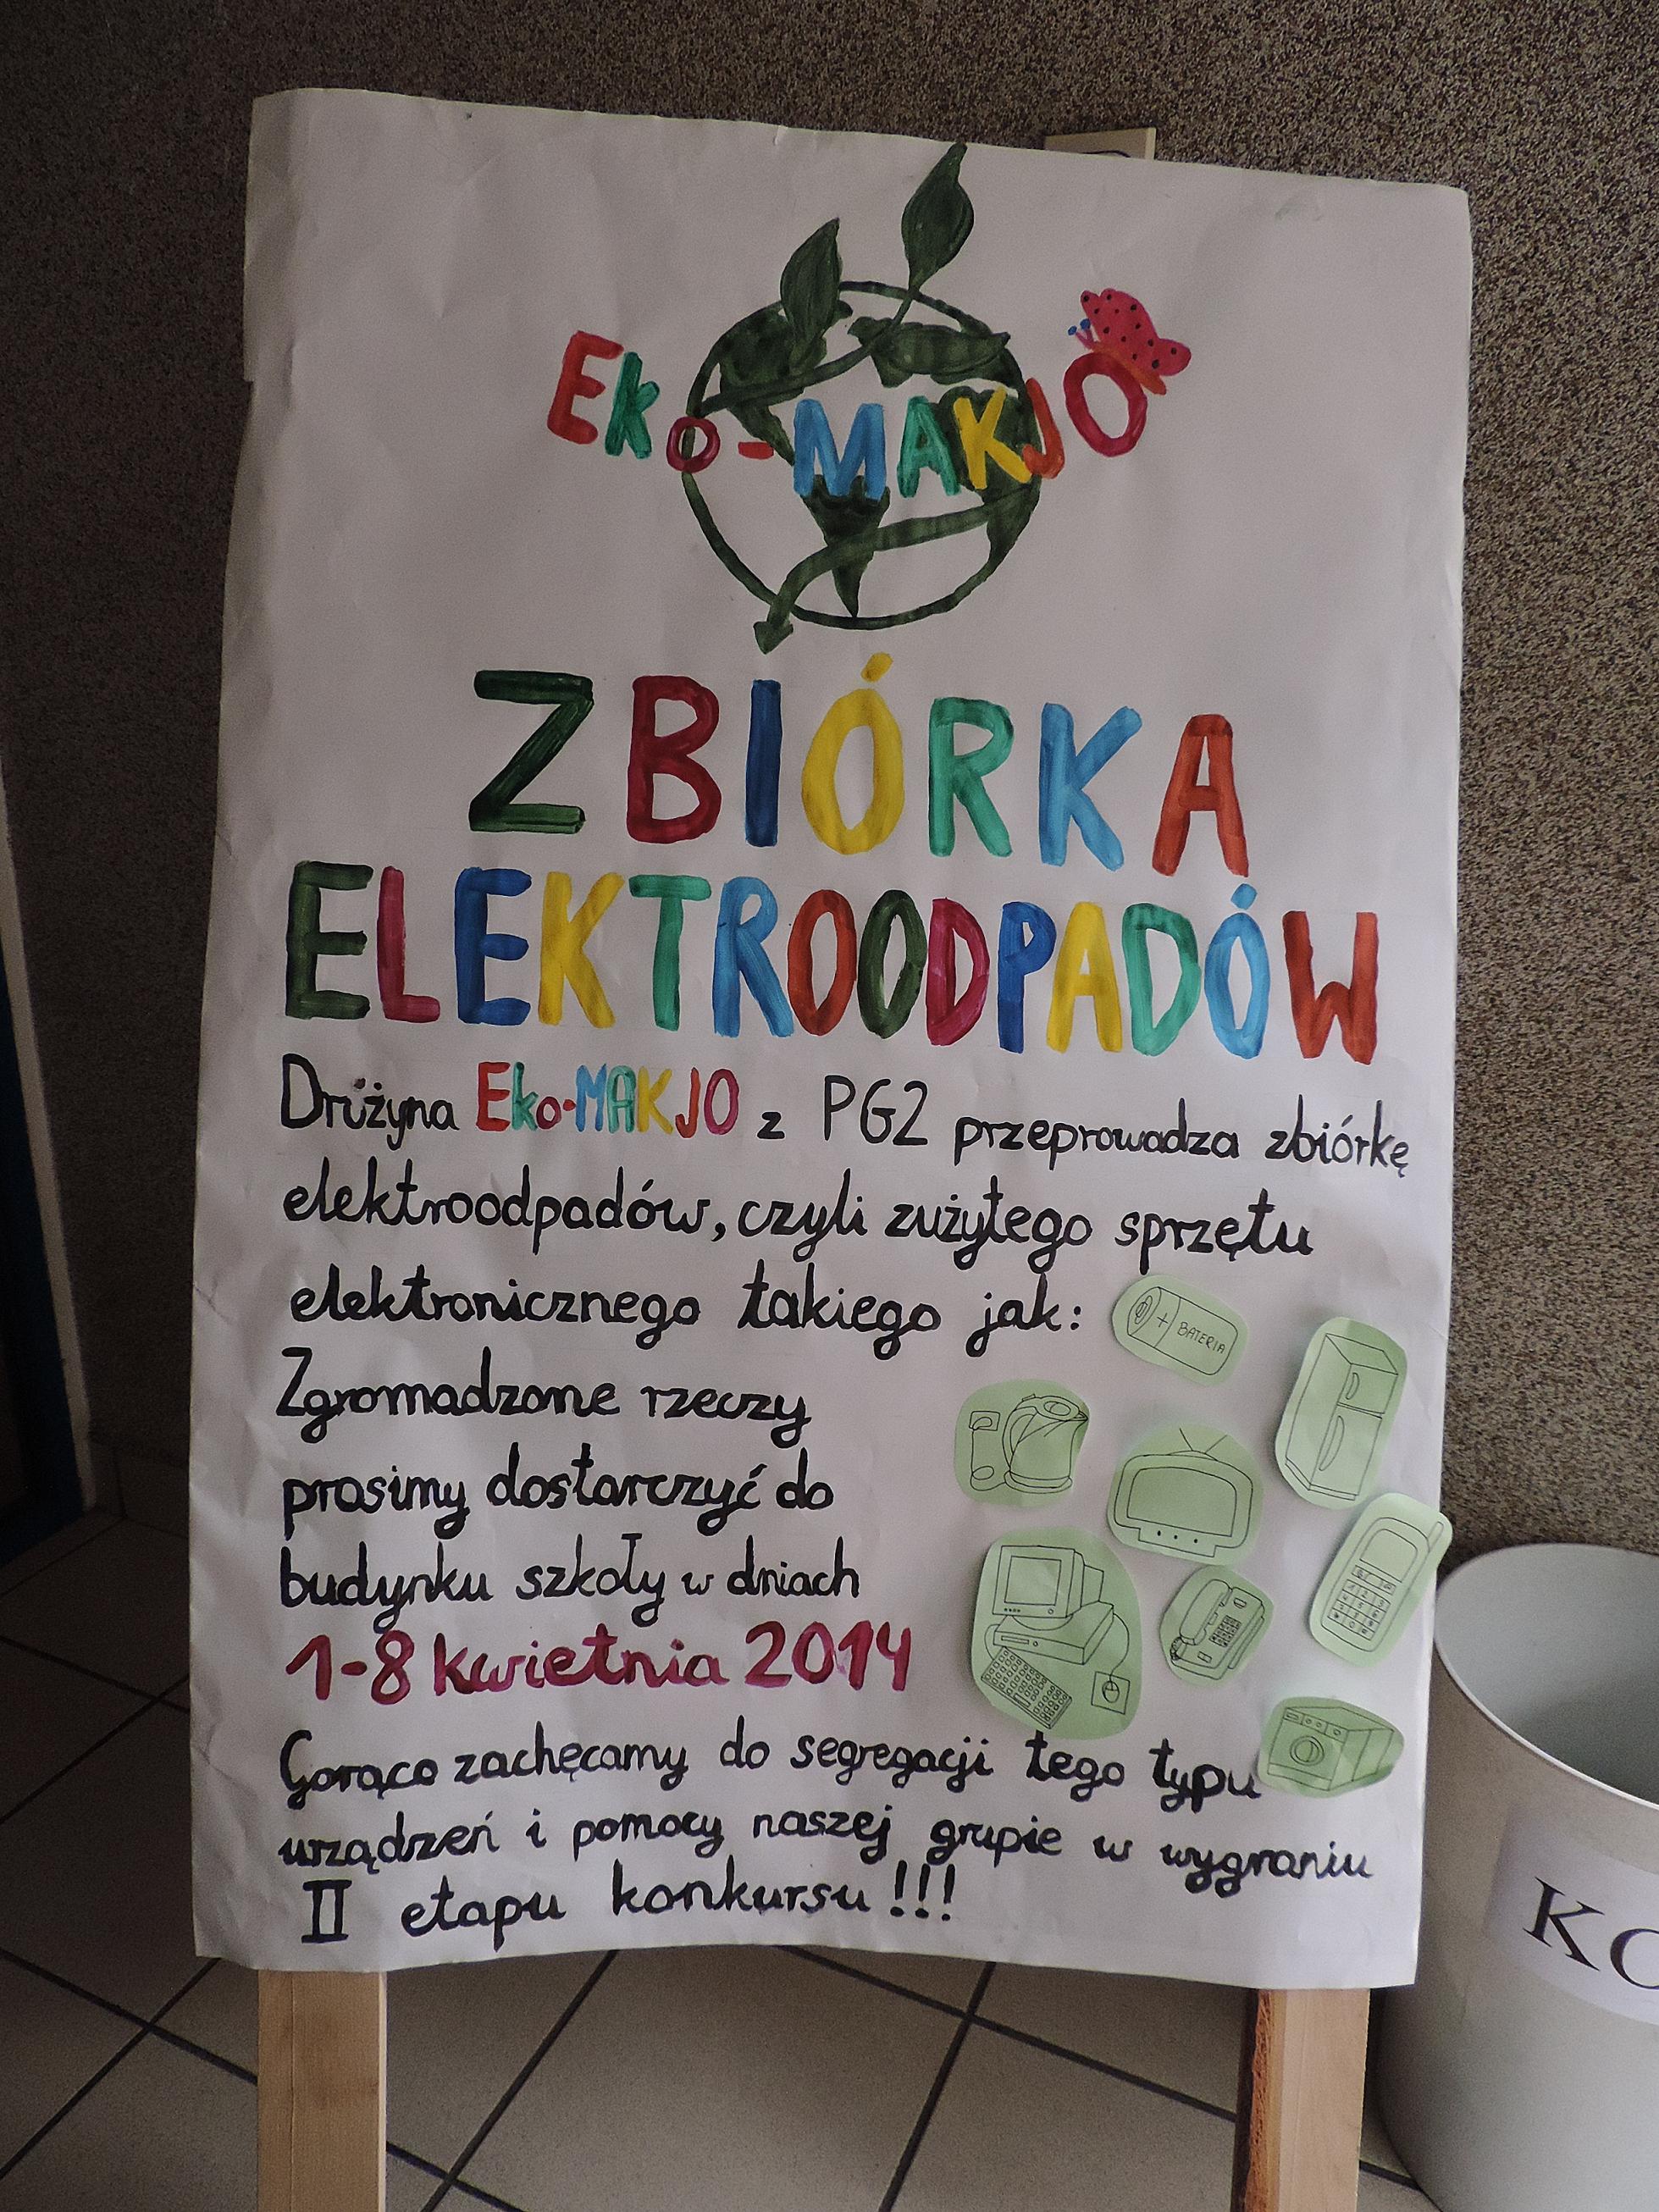 Eko-MAKJO
ZBIÓRKA
ELEKTROODPADÓW
Drużyna Eko-MAKJO z PG2 przeprowadza zbiórkę
elektroodpadów, czyli zużytego sprzętu
elektronicznego takiego jak:
BATERIA
Zgromadzone rzeczy
prosimy dostarczyć do
budynku szkoły w dniach
1-8 kwietnia 2014
Gorąco zachęcamy do segregacji tego typu
urządzeń i pomocy naszej grupie w wygraniu
II etapu konkursu!!!